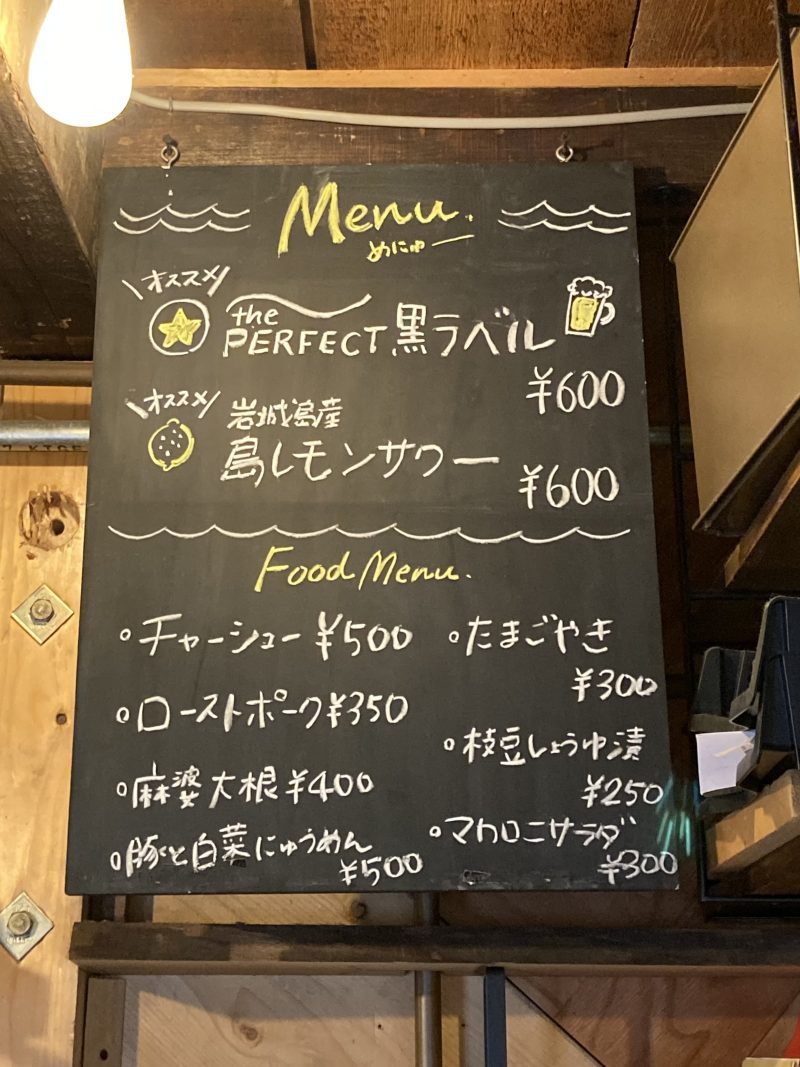 Menu.
めにゅー
\オススメ/
the
PERFECT 黒ラベル
¥600
\オススメ/
岩城島産
島レモンサワー
¥600
Food Menu.
○チャーシュー ¥500
○ローストポーク ¥350
○麻婆大根 ¥400
○豚と白菜にゅうめん
¥500
○たまごやき
¥300
○枝豆しょうゆ漬
¥250
○マカロニサラダ
¥300